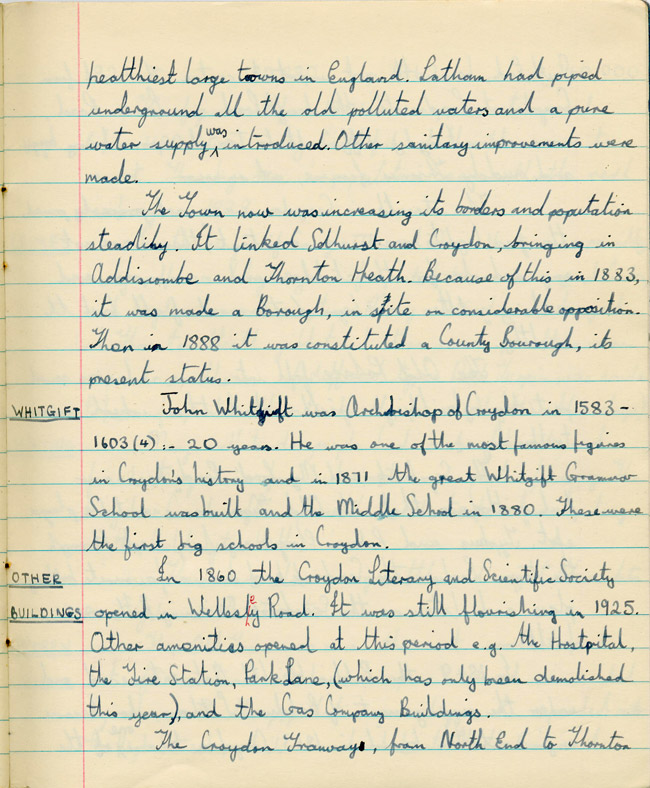 healthiest large towns in England. Latham had piped
underground all the old polluted waters and a pure
water supply was introduced. Other sanitary improvements were
made.
The Town now was increasing its borders and population
steadily. It linked Selhurst and Croydon, bringing in
Addiscombe and Thornton Heath. Because of this in 1883,
it was made a Borough, in spite on considerable opposition.
Then in 1888 it was constituted a County Bourough, its
present status.
WHITGIFT John Whitgift was Archbishop of Croydon in 1583-
1603(4):- 20 years. He was one of the most famous figures
in Croydon's history and in 1871 the great Whitgift Grammar
School was built and the Middle School in 1880. These were
the first big schools in Croydon.
OTHER In 1860 the Croydon Literary and Scientific Society
BUILDINGS opened in Wellesley Road. It was still flourishing in 1925.
Other amenities opened at this period e.g. the Hostpital,
the Fire Station, Park Lane, (which has only been demolished
this year), and the Gas Company Buildings.
The Croydon Tramways, from North End to Thornton